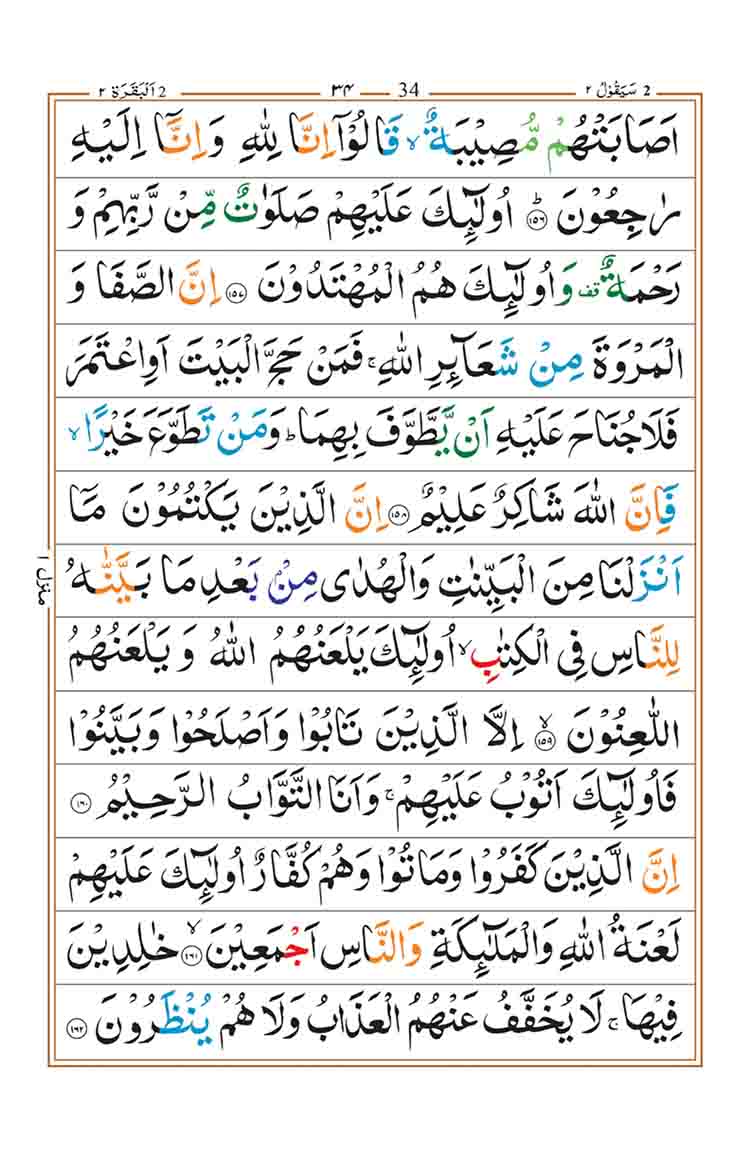 2 سَيَقُوْلُ ٢ 34 ٣٤ 2 اَلْبَقَرَة ٢
اَصَابَتْهُمْ مُّصِيْبَةٌ ۙ قَالُوْۤا اِنَّا لِلّٰهِ وَ اِنَّاۤ اِلَيْهِ
رٰجِعُوْنَ ؕ﴿١٥٦﴾ اُولٰٓئِكَ عَلَيْهِمْ صَلَوٰتٌ مِّنْ رَّبِّهِمْ وَ
رَحْمَةٌ قف وَ اُولٰٓئِكَ هُمُ الْمُهْتَدُوْنَ ﴿١٥٧﴾ اِنَّ الصَّفَا وَ
الْمَرْوَةَ مِنْ شَعَآئِرِ اللّٰهِ ۚ فَمَنْ حَجَّ الْبَيْتَ اَوِ اعْتَمَرَ
فَلَا جُنَاحَ عَلَيْهِ اَنْ يَّطَّوَّفَ بِهِمَا ؕ وَ مَنْ تَطَوَّعَ خَيْرًا ۙ
فَاِنَّ اللّٰهَ شَاكِرٌ عَلِيْمٌ ﴿١٥٨﴾ اِنَّ الَّذِيْنَ يَكْتُمُوْنَ مَاۤ
اَنْزَلْنَا مِنَ الْبَيِّنٰتِ وَالْهُدٰى مِنْۢ بَعْدِ مَا بَيَّنّٰهُ
لِلنَّاسِ فِى الْكِتٰبِ ۙ اُولٰٓئِكَ يَلْعَنُهُمُ اللّٰهُ وَ يَلْعَنُهُمُ
اللّٰعِنُوْنَ ۙ﴿١٥٩﴾ اِلَّا الَّذِيْنَ تَابُوْا وَاَصْلَحُوْا وَبَيَّنُوْا
فَاُولٰٓئِكَ اَتُوْبُ عَلَيْهِمْ ۚ وَاَنَا التَّوَّابُ الرَّحِيْمُ ﴿١٦٠﴾
اِنَّ الَّذِيْنَ كَفَرُوْا وَمَاتُوْا وَهُمْ كُفَّارٌ اُولٰٓئِكَ عَلَيْهِمْ
لَعْنَةُ اللّٰهِ وَالْمَلٰٓئِكَةِ وَالنَّاسِ اَجْمَعِيْنَ ۙ﴿١٦١﴾ خٰلِدِيْنَ
فِيْهَا ۚ لَا يُخَفَّفُ عَنْهُمُ الْعَذَابُ وَلَا هُمْ يُنْظَرُوْنَ ﴿١٦٢﴾
منزل ١